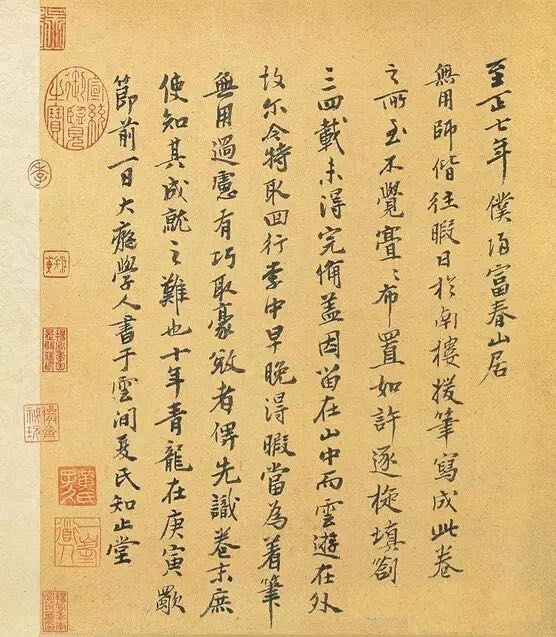 至正七年僕歸富春山居
無用師偕往暇日於南樓援筆寫成此卷
之所至不覺亹〻布置如許逐旋填劄
三四載未得完備盖因留在山中而雲遊在外
故尔今特取回行李中早晚得暇當為着筆
無用過慮有巧取豪敓者俾先識卷末庶
使知其成就之難也十年青龍在庚寅歜
節前一日大癡學人書于雲間夏氏知止堂
宣統御覽之寶
黃氏子久
一峯道人